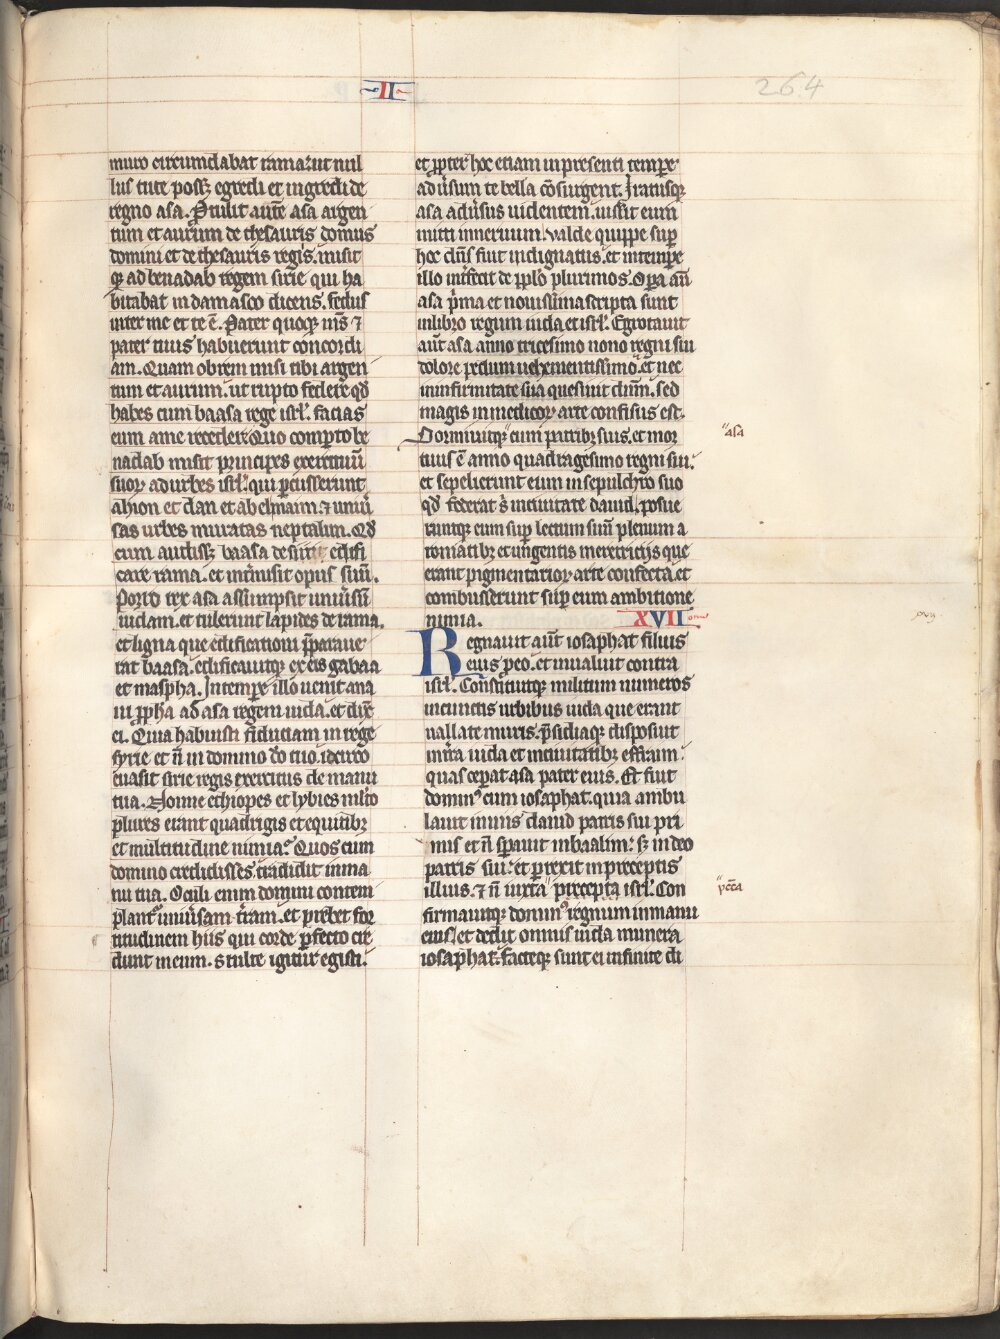 II
264
muro circumdabat rama. ut nul
lus tute poss; egredi et ingredi de
regno asa. Protulit aute asa argen
tum et aurum de thesauris domus
domini et de thesauris regis. misit
q; ad benadab regem sirie qui ha
bitabat in damasco dicens. fedus
inter me et te ē. Pater quoq; mſ ⁊
pater tuus habuerunt concordi
am. Quam obrem misi tibi argen
tum et aurum. ut rupto federe qd
habes cum baasa rege isrl. facias
eum a me recedere. Quo comperto be
nadab misit principes exercituū
suoꝝ ad urbes isrl. qui ꝑcusserunt
ahion et dan et abelmaim. ⁊ uniū
sas urbes muratas neptalim. Qd
cum audiss; baasa desiit edifi
care rama. et intmisit opus suū.
Porro rex asa assumpsit uniuſſū
iudam. et tulerunt lapides de rama.
et ligna que edificationi pparaue
rat baasa. edificauitq; ex eis gabaa
et maspha. In tempe illo uenit ana
ni ppha ad asa regem iuda. et dix
ei. Quia habuisti fiduciam in rege
syrie et ñ in domino do tuo. idcirco
euasit sirie regis exercitus de manu
tua. Nonne ethiopes et lybies mlto
plures erant quadrigis et equitibꝫ
et multitudine nimia. Quos cum
domino credidisses. tradidit in ma
nu tua. Oculi enim domini contem
plant uniuſam tram. et prebet for
titudinem hiis qui corde pfecto cre
dunt in eum. stulte igitur egisti.
et ppter hoc etiam in presenti tempe
adūsum te bella cōsurgent. Iratusq;
asa adūsus uidentem. iussit eum
mitti in neruum. valde quippe sup
hoc dns fiut indignatus. et in tempe
illo inffecit de pplo plurimos. Opa aū
asa pma et nouissima scripta sunt
in libro regum iuda et isrl. Egrotauit
aut asa anno tricesimo nono regni sui
dolore pedum uehementissimo. et nec
in infirmitate sua quesiuit dnm. sed
magis in medicoꝝ arte confisus est.
Dormiuitq; cum patribꝫ suis. et mor
tuus ē anno quadragesimo regni sui.
et sepelierunt eum in sepulchro suo
qd federat s in ciuitate dauid. posue
runtq; eum sup lectum suū plenum a
romatibꝫ et ungentis meretriciis que
erant pigmentarioꝝ arte confecta. et
combusserunt sup eum ambitione
nimia. XVII
Regnauit aut iosaphat filius
eius p eo. et inualuit contra
isrl. Constituitq; militum numeros
in cunctis urbibus iuda que erant
uallate muris. psidiaq; disposuit
in tra iuda et in ciuitatibꝫ effraim.
quas cepat asa pater eius. Et fuit
dominꝰ cum iosaphat. quia ambu
lauit in uiis dauid patris sui pri
mis et ñ spauit in baalim. sꝫ in deo
patris sui. et pirexit in preceptis
illius. ⁊ ñ iuxta precepta isrl. Con
firmauitq; dominꝰ regnum in manu
eius. et dedit omnis iuda munera
iosaphat. facteq; sunt ei infinite di
asa
xvij
pccā